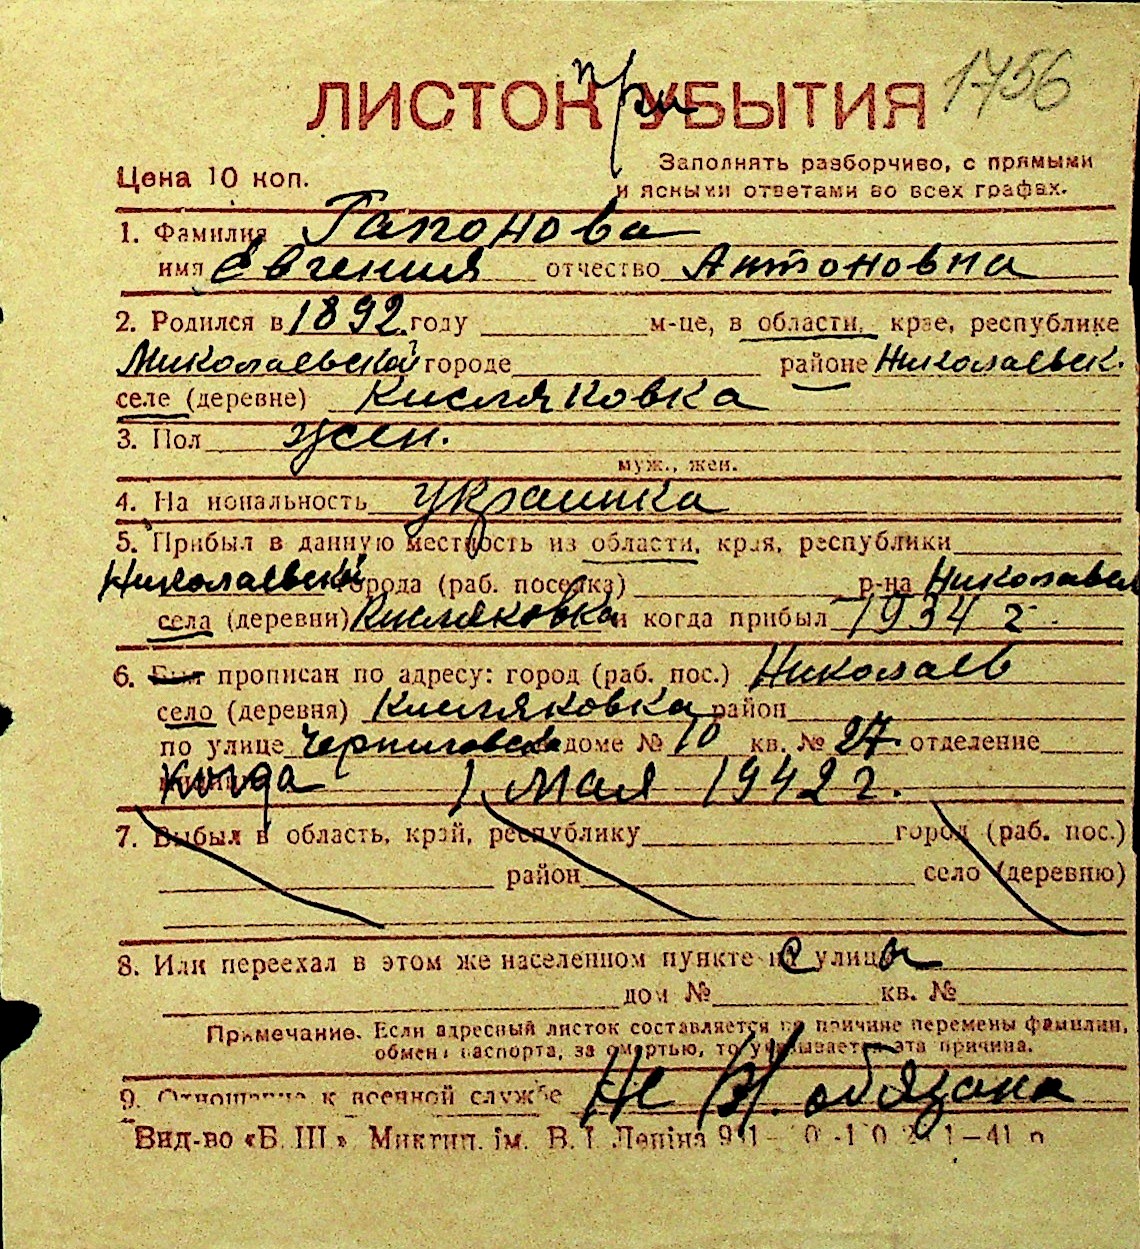 при 1756
ЛИСТОК УБЫТИЯ
Заполнять разборчиво, с прямыми
Цена 10 коп. и ясными ответами во всех графах.
1. Фамилия Гапонова
имя Евгения отчество Антоновна
2. Родился в 1892 году м-це, в области, крае, республике
Николаевской городе районе Николаевск.
селе (деревне) Кисляковка
3. Пол жен.
муж., жен.
4. На иональность украинка
5. Прибыл в данную местность из области, края, республики
Николаевской города (раб. поселка) р-на Николаевск
села (деревни) Кисляковка и когда прибыл 1934 г.
6. Был прописан по адресу: город (раб. пос.) Николаев
село (деревня) Кисляковка район
по улице Черниговская доме № 10 кв. № 27. отделение
когда 1 мая 1942 г.
7. Выбыл в область, край, республику город (раб. пос.)
район село (деревню)
8. Или переехал в этом же населенном пункте с улицы
дом № кв. №
Примечание. Если адресный листок составляется по причине перемены фамилии,
обмена паспорта, за смертью, то указывается эта причина.
9. Отношение к военной службе Не в. обязана
Вид-во «Б. Ш.» Миктип. ім. В. І. Леніна